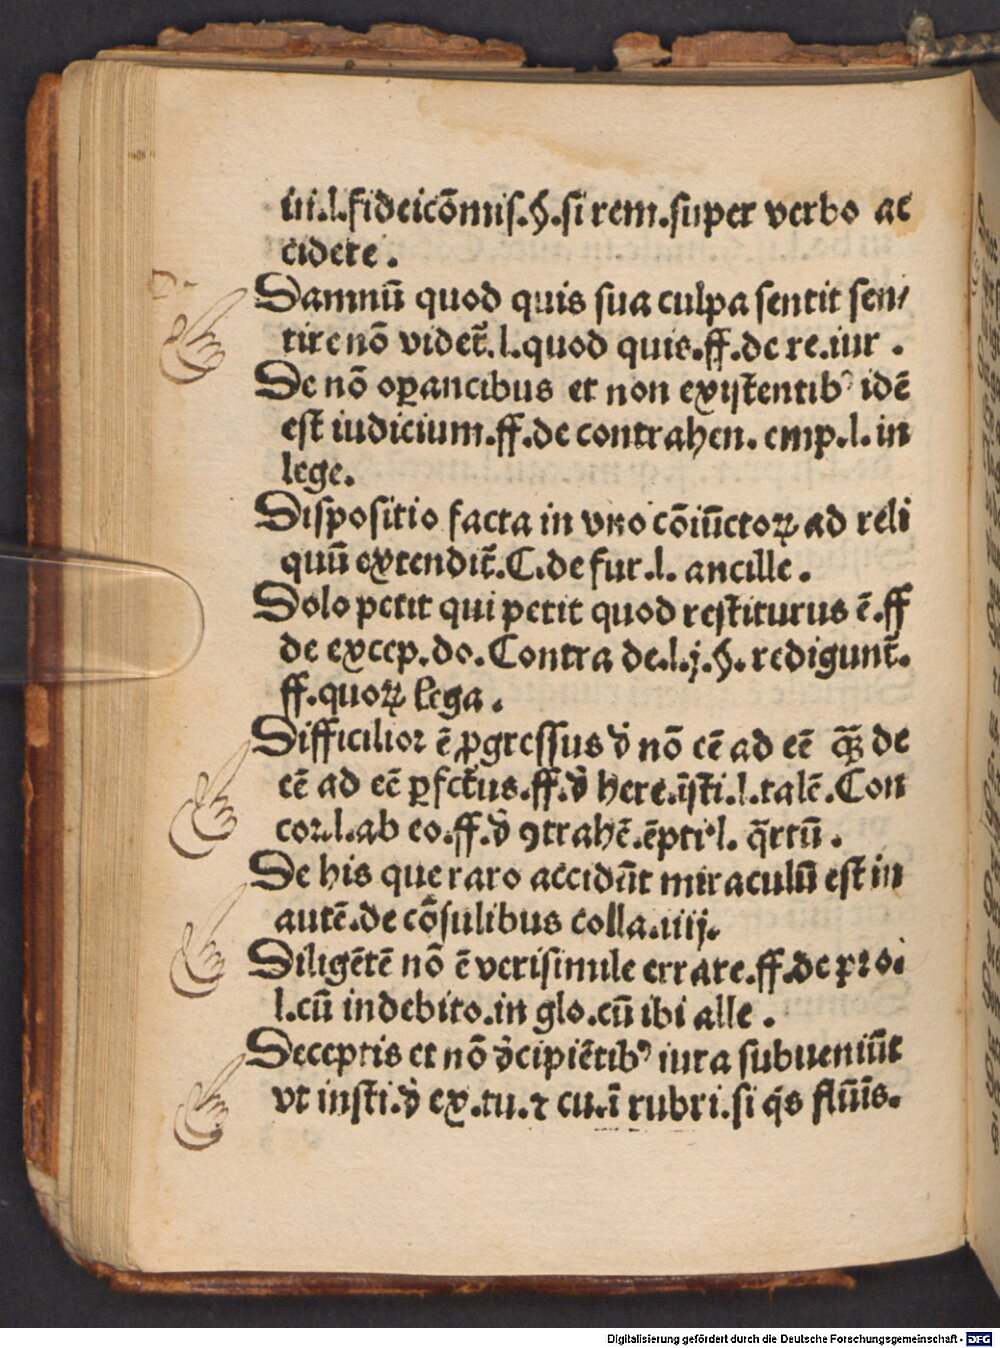 iii.l.fideicōmis.§.si rem.super verbo ac
cidere.
D.
Damnū quod quis sua culpa sentit sen/
tire nō videt̃.l.quod quis.ff.de re.iur.
De nō oꝑancibus et non existentibꝰ idē
est iudicium.ff.de contrahen.emp.l.in
lege.
Dispositio facta in vno cōiūctoꝝ ad reli
quū extendit̃.C.de fur.l.ancille.
Dolo petit qui petit quod restiturus ē.ff
de excep.do.Contra de.l.j.§.redigunt̃.
ff.quoꝝ lega.
Difficilior ē ꝓgressus d̄ nō eē ad eē q̄ꝫ de
eē ad eē ꝑfctūs.ff.d̄ here.īsti.l.talē.Con
cor.l.ab eo.ff.d̄ ꝯtrahē.ēpti.l.q̄rtū.
De his que raro accidūt miraculū est in
autē.de cōsulibus colla.iiij.
Diligētē nō ē verisimile errare.ff.de proi
l.cū indebito.in glo.cū ibi alle.
Deceptis et nō d̄cipiētibꝰ iura subueniūt
vt insti.d̄ ex.tu.⁊ cu.ī rubri.si q̄s flūīs.
Digitalisierung gefördert durch die Deutsche Forschungsgemeinschaft - DFG